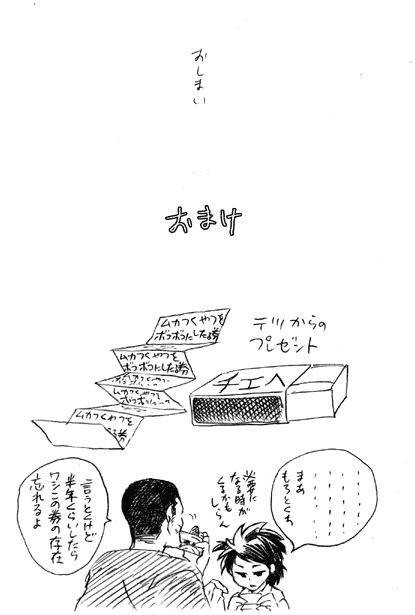 おしまい
おまけ
テツからの
プレゼント
ムカつくやつを
ボコボコにした券
ムカつくやつを
ボコボコにした券
ムカつくやつを
チエへ
まあ
もろとくわ
必要に
なる時が
くるかも
しらん
言うとくけど
半年くらいしたら
ワシこの券の存在
忘れるよ